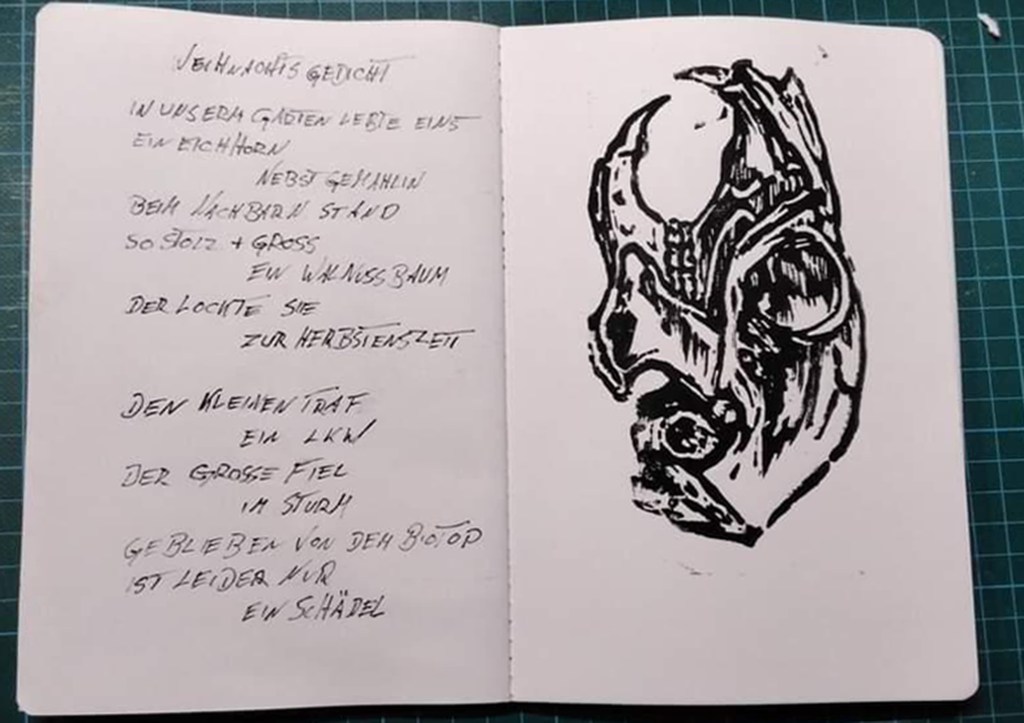 WEIHNACHTSGEDICHT
IN UNSERM GARTEN LEBTE EINST
EIN EICHHORN
NEBST GEMAHLIN
BEIM NACHBARN STAND
SO STOLZ + GROSS
EIN WALNUSSBAUM
DER LOCKTE SIE
ZUR HERBSTENSZEIT
DEN KLEINEN TRAF
EIN LKW
DER GROSSE FIEL
IM STURM
GEBLIEBEN VON DEM BIOTOP
IST LEIDER NUR
EIN SCHÄDEL